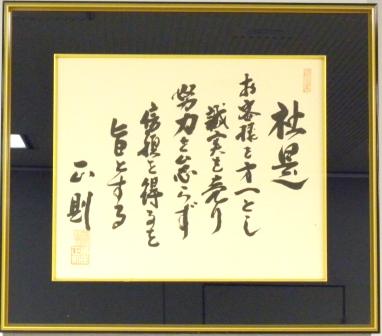 社是
お客様を第一とし
誠実を売り
努力を怠らず
信頼を得るを
旨とする
正則